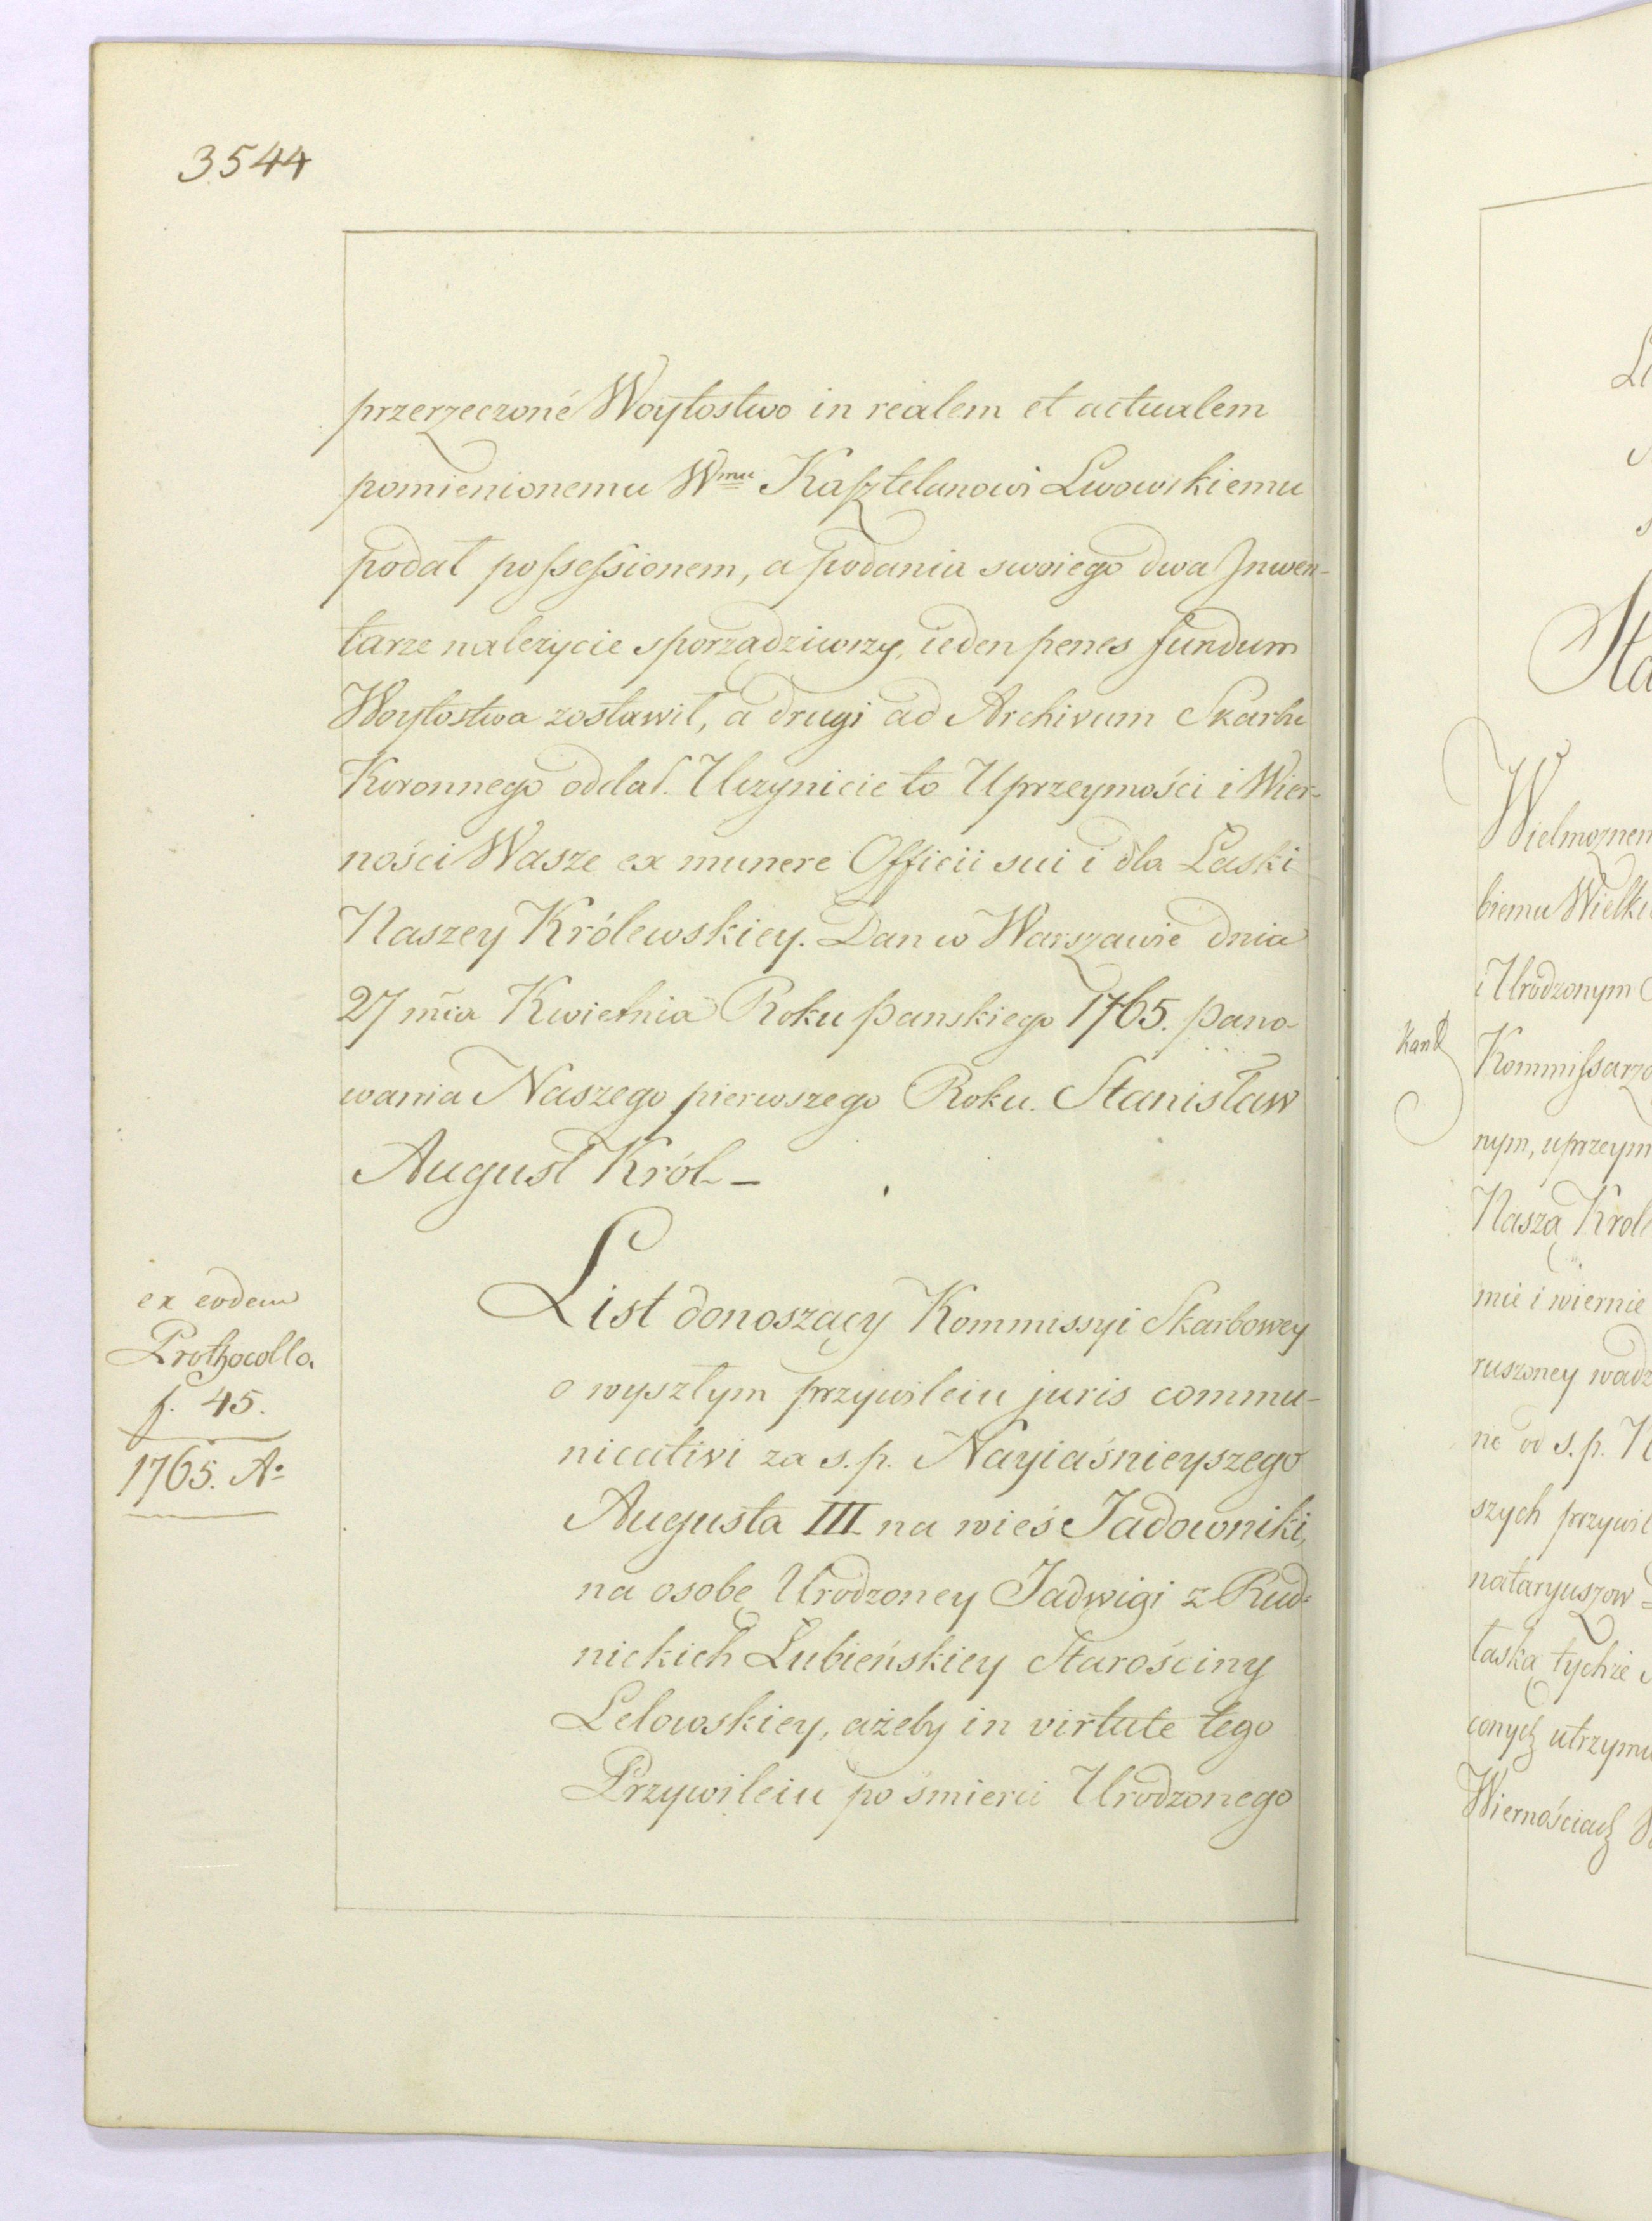 3544
przerzeczoné Woytostwo in realem et actualem
pomienionemu Wmu Kasztelanowi Lwowskiemu
podał possessionem, a podania swoiego dwa Inwen-
tarze należycie sporządziwszy, ieden penes fundum
Woytostwa zostawił, a drugi ad Archivum Skarbu
Koronnego oddał. Uczynicie to Uprzeymości i Wier-
ności Wasze ex munere Officii sui i dla Łaski
Naszey Królewskiey. Dan w Warszawie dnia
27 mca Kwietnia Roku panskiego 1765. pano-
wania Naszego pierwszego Roku. Stanisław
August Król –
ex eodem
Prothocollo.
f. 45.
1765. Ao
List donoszący Kommissyi Skarbowey
o wyszłym przywileiu juris commu-
nicativi za s. p. Nayiaśnieyszego
Augusta III na wieś Jadowniki,
na osobę Urodzoney Jadwigi z Rud-
nickich Łubieńskiey Starościny
Lelowskiey, ażeby in virtute tego
Przywileiu po śmierci Urodzonego
Sta
Wielmożnem
biemu Wielki
i Urodzonym
Kommissarzo
nym, uprzeym
Naszą Krole
mie i wiernie
ruszoney wadz
ne od s. p.
szych przywil
nataryuszow
łaską tychże
conych utrzymu
Wiernościach